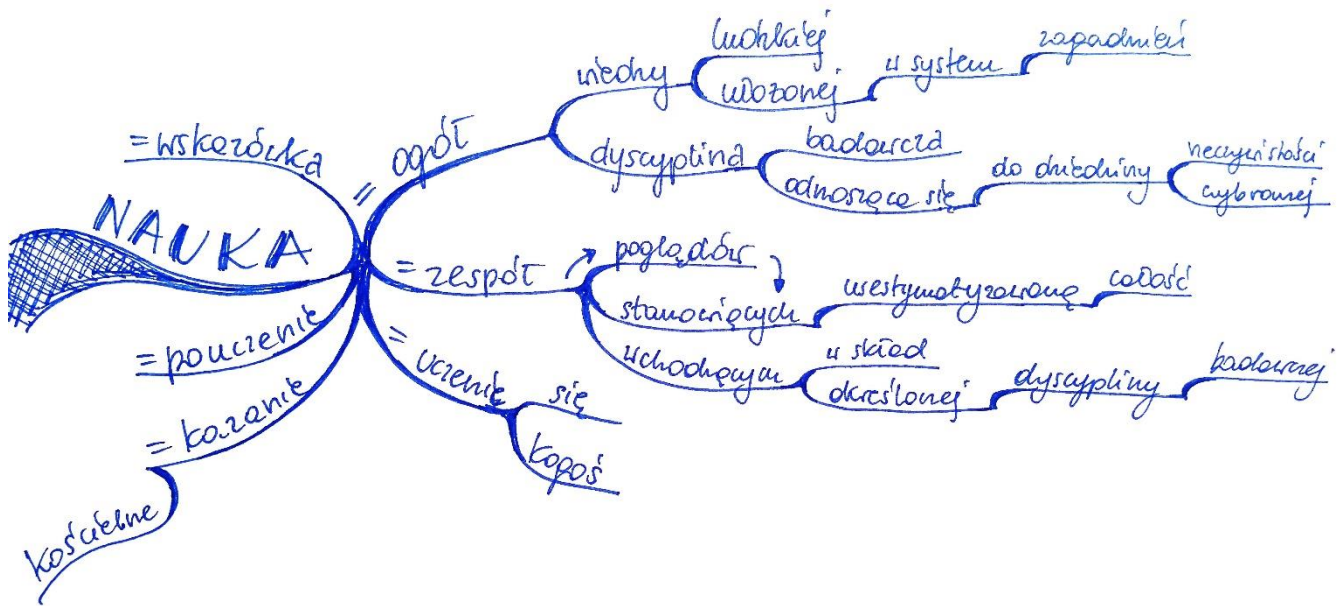 NAUKA
= wskazówka
= pouczenie
= kazanie
kościelne
= ogół
wiedzy
ludzkiej
ułożonej
w system
zagadnień
dyscyplina
badawcza
odnosząca się
do dziedziny
rzeczywistości
wybranej
= zespół
poglądów
stanowiących
usestymatyzowaną
całość
wchodzącym
w skład
określonej
dyscypliny
badawczej
= uczenie
się
kogoś